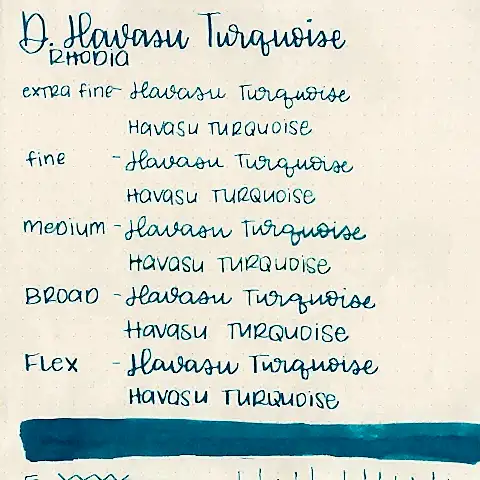 D. Havasu Turquoise
RHODIA
extra fine - Havasu Turquoise
HAVASU TURQUOISE
fine - Havasu Turquoise
HAVASU TURQUOISE
medium - Havasu Turquoise
HAVASU TURQUOISE
BROAD - Havasu Turquoise
HAVASU TURQUOISE
FLEX - Havasu Turquoise
HAVASU TURQUOISE